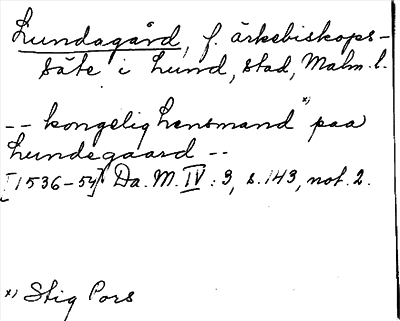 Lundagård, f. ärkebiskops-
säte i Lund, stad, Malm. l.
-- kongelig Lensmand x) paa
Lundegaard --
[1536-54] Da. M. IV: 3, s. 143, not. 2.
x) Stig Pors